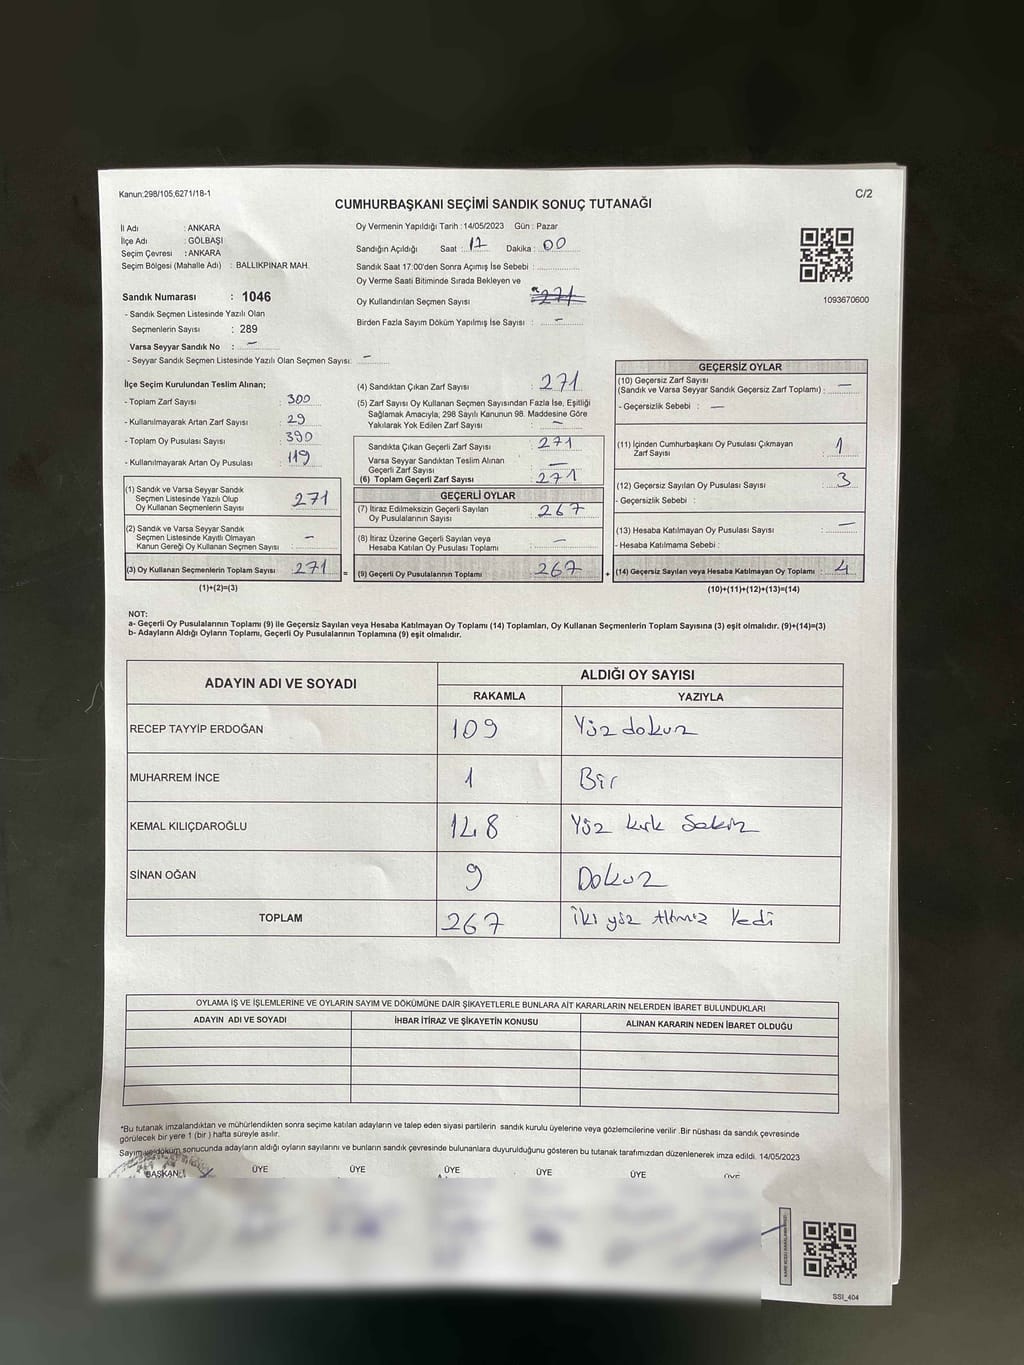 Kanun:298/105,6271/18-1
C/2
CUMHURBAŞKANI SEÇİMİ SANDIK SONUÇ TUTANAĞI
İl Adı : ANKARA
İlçe Adı : GÖLBAŞI
Seçim Çevresi : ANKARA
Seçim Bölgesi (Mahalle Adı) : BALLIKPINAR MAH.
Sandık Numarası : 1046
- Sandık Seçmen Listesinde Yazılı Olan
Seçmenlerin Sayısı : 289
Varsa Seyyar Sandık No : -
- Seyyar Sandık Seçmen Listesinde Yazılı Olan Seçmen Sayısı: -
Oy Vermenin Yapıldığı Tarih : 14/05/2023 Gün : Pazar
Sandığın Açıldığı Saat : 17 Dakika : 00
Sandık Saat 17:00'den Sonra Açımış İse Sebebi :
Oy Verme Saati Bitiminde Sırada Bekleyen ve
Oy Kullandırılan Seçmen Sayısı : 271
Birden Fazla Sayım Döküm Yapılmış İse Sayısı : -
1093670600
İlçe Seçim Kurulundan Teslim Alınan;
- Toplam Zarf Sayısı : 300
- Kullanılmayarak Artan Zarf Sayısı : 29
- Toplam Oy Pusulası Sayısı : 390
- Kullanılmayarak Artan Oy Pusulası : 119
(1) Sandık ve Varsa Seyyar Sandık
Seçmen Listesinde Yazılı Olup
Oy Kullanan Seçmenlerin Sayısı : 271
(2) Sandık ve Varsa Seyyar Sandık
Seçmen Listesinde Kayıtlı Olmayan
Kanun Gereği Oy Kullanan Seçmen Sayısı : -
(3) Oy Kullanan Seçmenlerin Toplam Sayısı : 271
(1)+(2)=(3)
(4) Sandıktan Çıkan Zarf Sayısı : 271
(5) Zarf Sayısı Oy Kullanan Seçmen Sayısından Fazla İse, Eşitliği
Sağlamak Amacıyla, 298 Sayılı Kanunun 98. Maddesine Göre
Yakılarak Yok Edilen Zarf Sayısı : -
Sandıkta Çıkan Geçerli Zarf Sayısı : 271
Varsa Seyyar Sandıktan Teslim Alınan
Geçerli Zarf Sayısı : -
(6) Toplam Geçerli Zarf Sayısı : 271
GEÇERLİ OYLAR
(7) İtiraz Edilmeksizin Geçerli Sayılan
Oy Pusulalarının Sayısı : 267
(8) İtiraz Üzerine Geçerli Sayılan veya
Hesaba Katılan Oy Pusulası Toplamı : -
= (9) Geçerli Oy Pusulalarının Toplamı : 267
GEÇERSİZ OYLAR
(10) Geçersiz Zarf Sayısı
(Sandık ve Varsa Seyyar Sandık Geçersiz Zarf Toplamı) : -
- Geçersizlik Sebebi : -
(11) İçinden Cumhurbaşkanı Oy Pusulası Çıkmayan
Zarf Sayısı : 1
(12) Geçersiz Sayılan Oy Pusulası Sayısı : 3
- Geçersizlik Sebebi :
(13) Hesaba Katılmayan Oy Pusulası Sayısı : -
- Hesaba Katılmama Sebebi :
+ (14) Geçersiz Sayılan veya Hesaba Katılmayan Oy Toplamı : 4
(10)+(11)+(12)+(13)=(14)
NOT:
a- Geçerli Oy Pusulalarının Toplamı (9) ile Geçersiz Sayılan veya Hesaba Katılmayan Oy Toplamı (14) Toplamları, Oy Kullanan Seçmenlerin Toplam Sayısına (3) eşit olmalıdır. (9)+(14)=(3)
b- Adayların Aldığı Oyların Toplamı, Geçerli Oy Pusulalarının Toplamına (9) eşit olmalıdır.
ADAYIN ADI VE SOYADI
ALDIĞI OY SAYISI
RAKAMLA YAZIYLA
RECEP TAYYİP ERDOĞAN 109 Yüz dokuz
MUHARREM İNCE 1 Bir
KEMAL KILIÇDAROĞLU 148 Yüz kırk Sekiz
SİNAN OĞAN 9 Dokuz
TOPLAM 267 İki yüz Altmış Yedi
OYLAMA İŞ VE İŞLEMLERİNE VE OYLARIN SAYIM VE DÖKÜMÜNE DAİR ŞİKAYETLERLE BUNLARA AİT KARARLARIN NELERDEN İBARET BULUNDUKLARI
ADAYIN ADI VE SOYADI İHBAR İTİRAZ VE ŞİKAYETİN KONUSU ALINAN KARARIN NEDEN İBARET OLDUĞU
*Bu tutanak imzalandıktan ve mühürlendikten sonra seçime katılan adayların ve talep eden siyasi partilerin sandık kurulu üyelerine veya gözlemcilerine verilir .Bir nüshası da sandık çevresinde
görülecek bir yere 1 (bir ) hafta süreyle asılır.
Sayım ve döküm sonucunda adayların aldığı oyların sayılarını ve bunların sandık çevresinde bulunanlara duyurulduğunu gösteren bu tutanak tarafımızdan düzenlenerek imza edildi. 14/05/2023
BAŞKAN ÜYE ÜYE ÜYE ÜYE ÜYE ÜYE
SSI_404